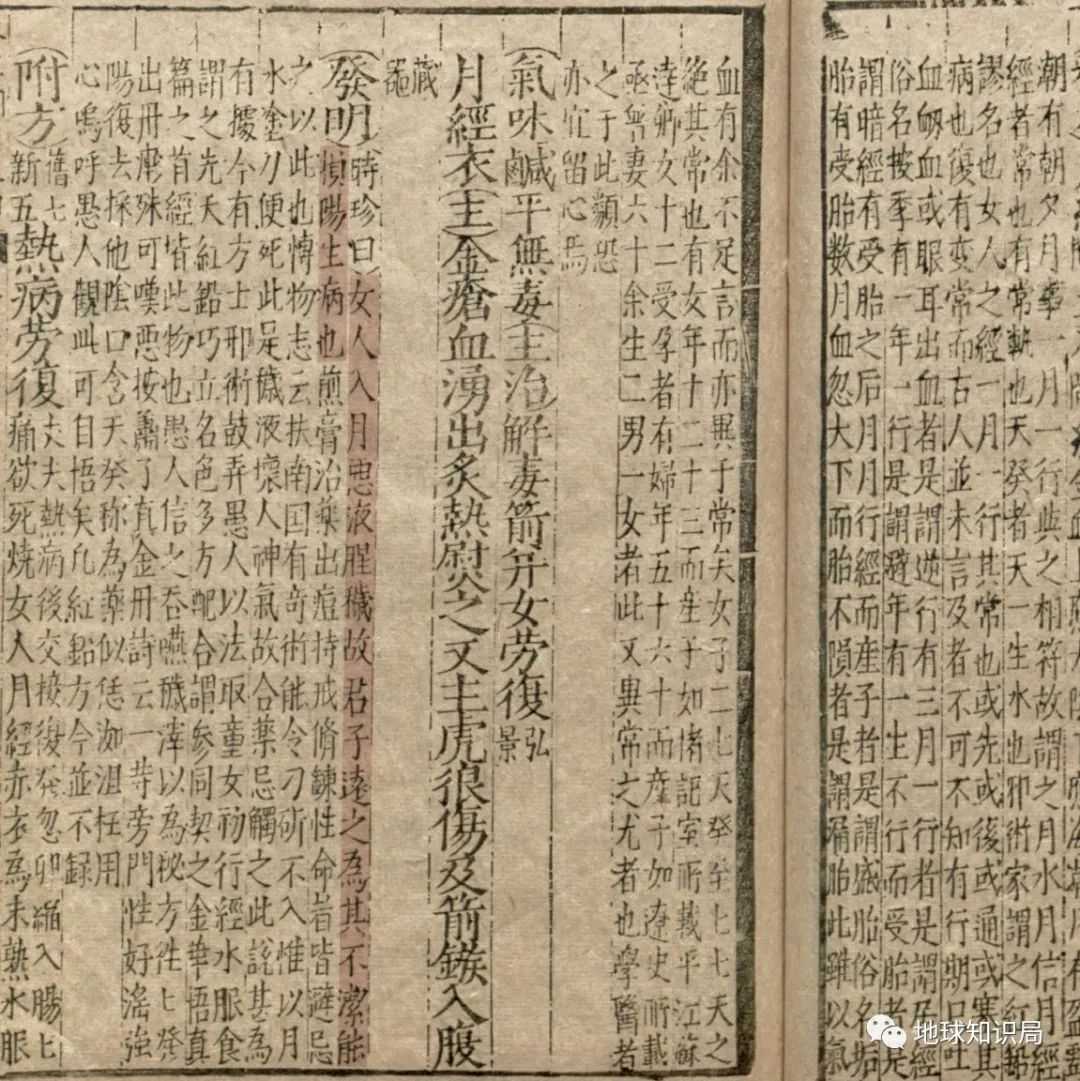 潮有朝夕月事一月一行與之相符故謂之月水月信月經
經者常也有常軌也天癸者天一生水也邪術家謂之紅鉛
謬名也女人之經一月一行其常也或先或後或通或塞其
病也復有变常而古人並未言及者不可不知有行期只吐
血衂血或眼耳出血者是謂逆行有三月一行者是謂居經
俗名按季有一年一行是謂避年有一生不行而受胎者是
謂暗經有受胎之后月月行經而産子者是謂盛胎俗名垢
胎有受胎数月血忽大下而胎不隕者是謂漏胎此雖以氣
血有余不足言而亦異于常矣女子二七天癸至七七天之
絶其常也有女年十二十三而産子如褚記室所載平江蘇
達卿女十二受孕者有婦年五十六十而産子如遼史所載
亟普妻六十余生二男一女者此又異常之尤者也學醫者
之于此類恐
亦宜留心焉
氣味鹹平無毒主治解毒箭并女劳復弘景
月經衣主金瘡血湧出炙熱熨之又主虎狼傷及箭鏃入腹
藏
器
發明時珍曰女人入月惡液腥穢故君子遠之為其不潔能
損陽生病也煎膏治藥出痘持戒修鍊性命者皆避忌
之以此也博物志云扶南囯有奇術能令刀斫不入惟以月
水塗刀便死此是穢液壞人神氣故合藥忌觸之此說甚為
有據今有方士邪術鼓弄愚人以法取童女初行經水服食
謂之先天紅鉛巧立名色多方配合謂參同契之金華悟真
篇之首經皆此物也愚人信之吞嚥穢滓以為秘方徃徃發
出丹𤺋殊可嘆惡按蕭了真金丹詩云一等旁門性好淫強
陽復去採他陰口含天癸称為藥似恁洳沮枉用
心嗚呼愚人觀此可自悟矣凡紅鉛方今並不録
附方舊七新五熱病劳復丈夫熱病後交接復發忽卵縮入腸七
痛欲死燒女人月經赤衣為末熟水服
地球知识局